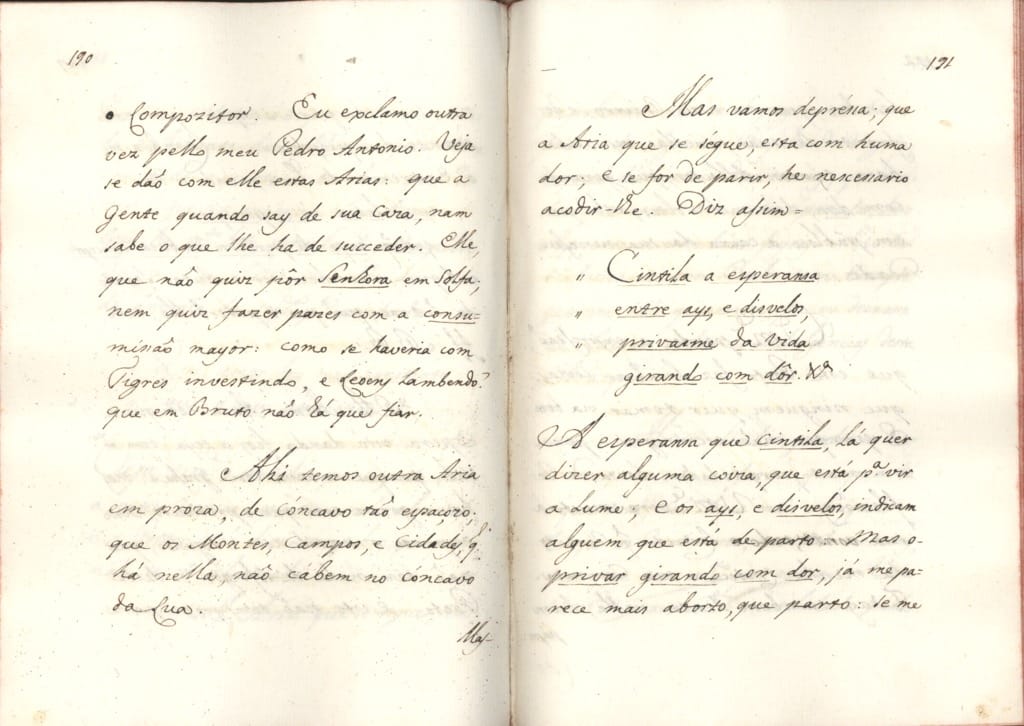 190
o Compozitor. Eu exclamo outra
vez pello meu Pedro Antonio. Veja
se dão com elle estas Arias: que a
Gente quando say de sua Caza, nam
sabe o que lhe ha de succeder. Elle,
que não quiz pôr Senhora em Solfa;
nem quiz fazer pazes com a consu=
misão mayor: como se haveria com
Tigres investindo, e Leoens Lambendo?
que em Bruto não há que fiar.
Ahi temos outra Aria
em proza, de cóncavo tão espaçozo;
que os Montes, Campos, e Cidades, q̃
há nella não cábem no cóncavo
da Lua.
Mas
191
Mas vamos depréssa; que
a Aria que se ségue, esta com huma
dor; e se for de parir, he nescessario
acodir-lhe. Diz assim=
" Cintila a esperansa
" entre ays, e disvelos,
" privarme da vida
girando com dôr. Xª
A esperansa que cintila, lá quer
dizer alguma coiza, que está pª vir
a Lume; e os ays, e disvelos, indicam
alguem que está de parto. Mas o-
privar girando com dor, já me pa=
rece mais aborto, que parto: se me